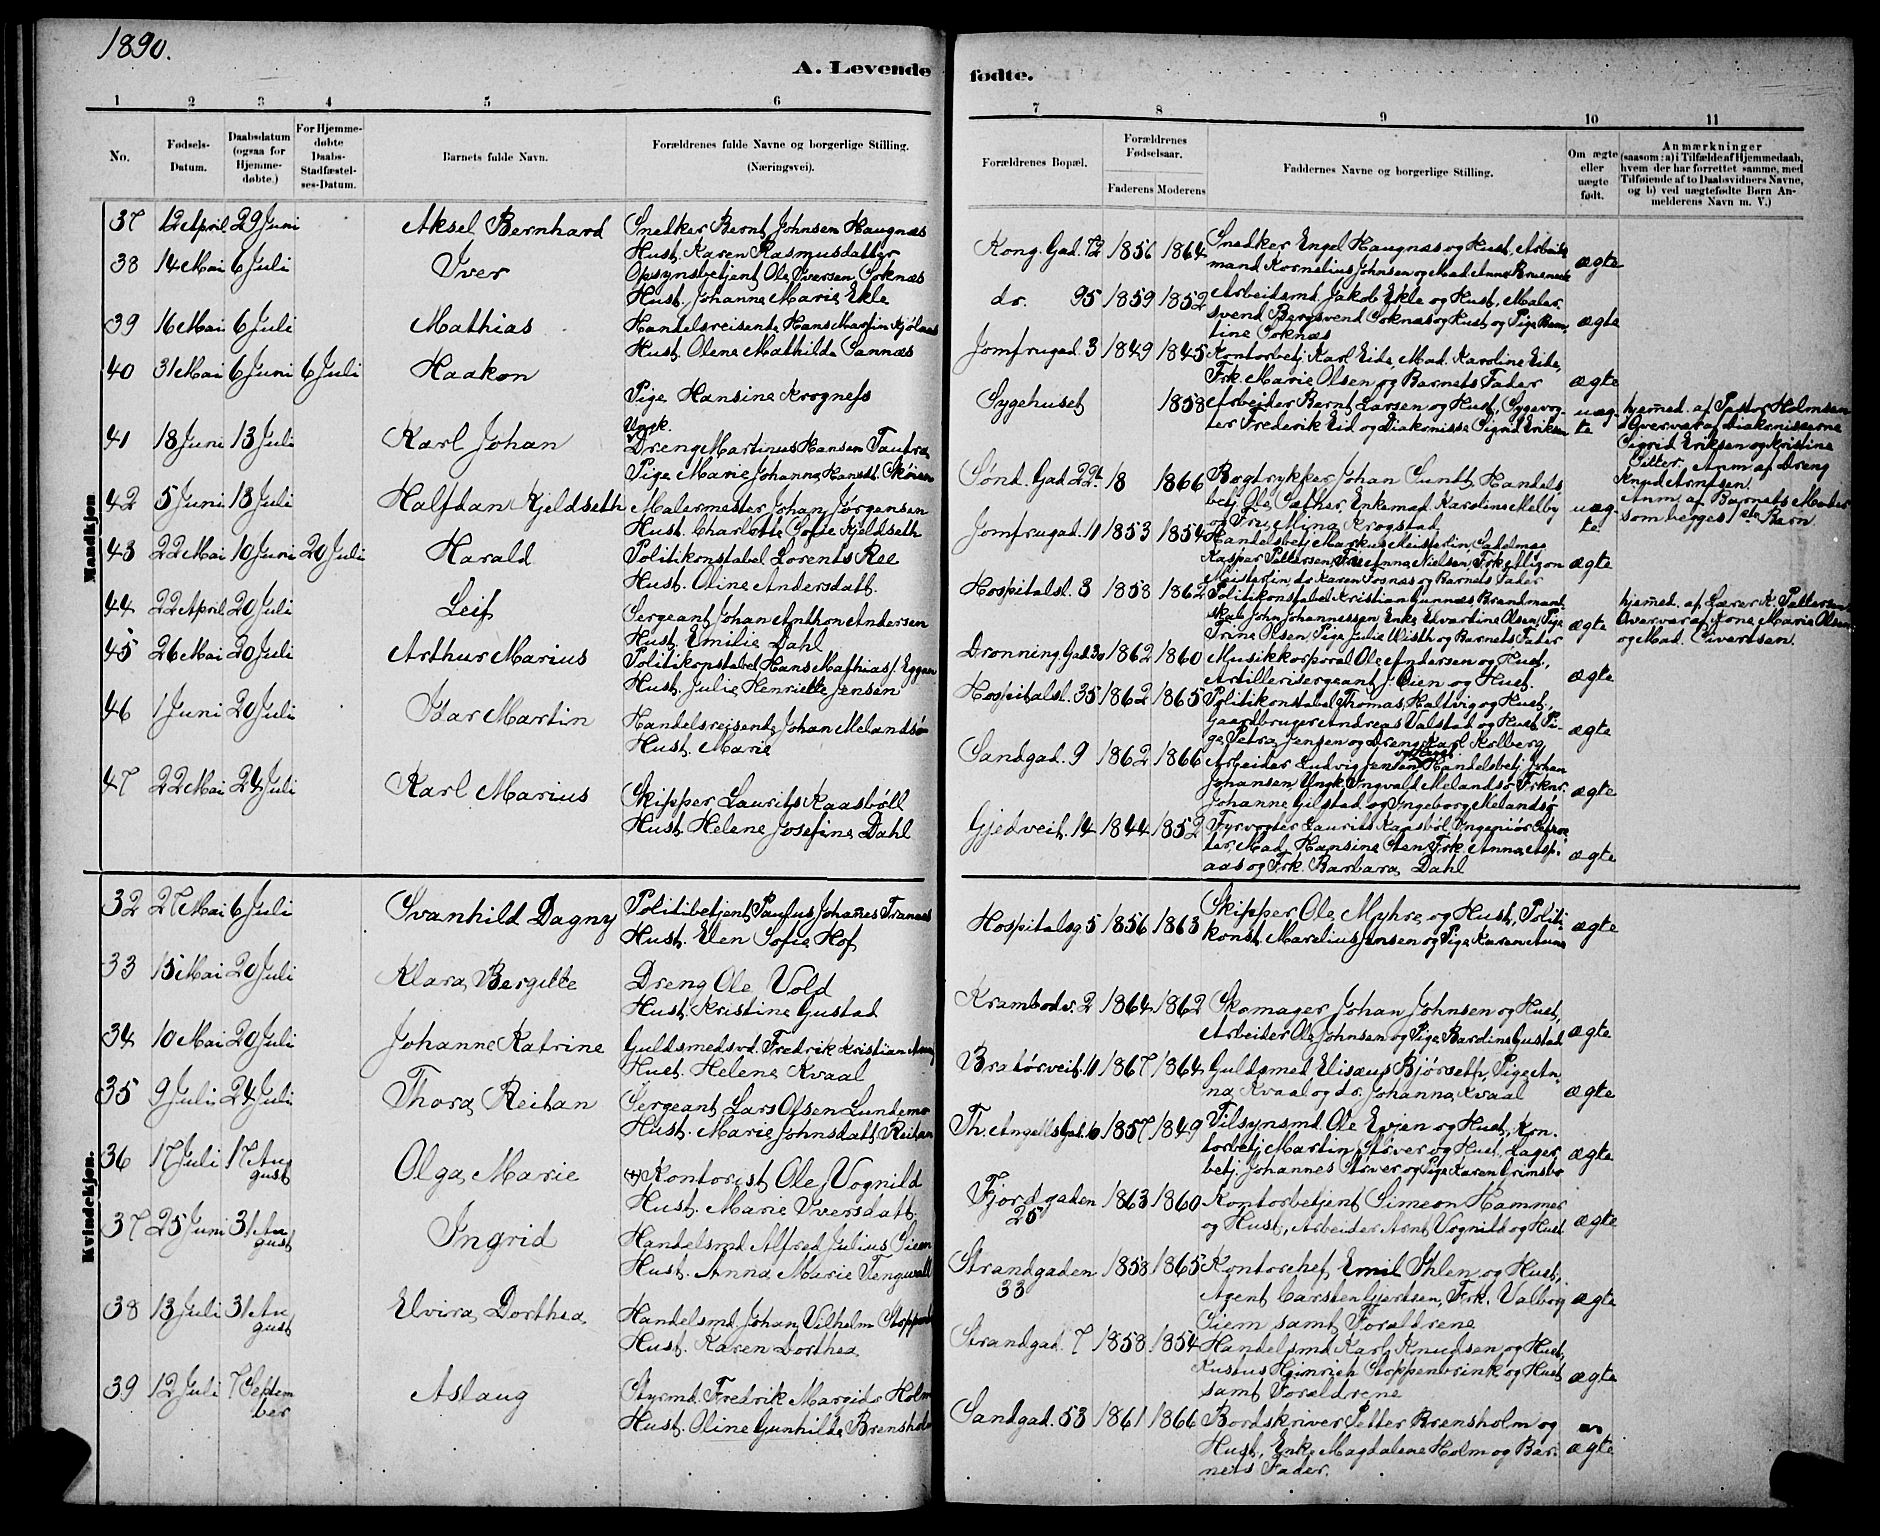 1890.
A. Levende fødte.
1 2 3 4 5 6 7 8 9 10 11
No.
Fødsels-
Datum.
Daabsdatum
(ogsaa for
Hjemme-
døbte.)
For Hjemme-
døbte
Daabs-
Stadfæstel-
ses-Datum.
Barnets fulde Navn.
Forældrenes fulde Navne og borgerlige Stilling.
(Næringsvei).
Forældrenes Bopæl.
Forældrenes
Fødselsaar.
Faderens Moderens
Faddernes Navne og borgerlige Stilling.
Om ægte
eller
uægte
født.
Anmærkninger
(saasom: a) i Tilfælde af Hjemmedaab,
hvem der har forrettet samme, med
Tilføiende af to Daabsvidners Navne,
og b) ved uægtefødte Børn An-
melderens Navn m. V.)
Mandkjøn
37 12 April 29 Juni Aksel Bernhard Snedker Bernt Johnsen Haugnæs
Hust. Karen Rasmusdatter
Kong. Gad. 72 1856 1864 Snedker Engel Haugnæs og Hust, Arbeids
mand Kornelius Johnsen og Mad. Anna
ægte
38 14 Mai 6 Juli Iver Opsynsbetjent Ole Iversen Soknæs
Hust. Johanna Marie Ekle
do. 95 1859 1852 Arbeidsmd. Jakob Ekle og Hust, Maler
svend Bergsvend Soknæs og Hust og Pige Bern
tine Soknæs
ægte
39 16 Mai 6 Juli Mathias Handelsreisende Hans Martin
Hust. Olena Mathilda Sannæs
Jomfrugad. 3 1849 1845 Kontorbetj. Karl Eide, Mad. Karoline Eide,
Frk. Marie Olsen og Barnets Fader
ægte
40 31 Mai 6 Juni 6 Juli Haakon
Pige Hansine Krognefs
Sygehuset 1858 Arbeider Bernt Larsen og Hust, Sygevog-
ter Frederik Eid og Diakonisse Sigrid Eriksen
uæg-
te
hjemed. af Pastor Holmsen
i Overvær af Diakonisserne
Sigrid Eriksen og Kristine
Sitter. Anm. af Dreng
Knud Arntsen.
41 18 Juni 13 Juli Karl Johan
Ungk.
Dreng Martinus Hansen Tautra
Pige Marie Johanna Hansdt. Skoien
Sønd. Gad. 22 18 1866 Bogtrykker Johan Sundt, Handels
betj. Ole Sæther, Enkemad. Karoline Melby
og Fru Mina Krogstad
uæg-
te
Anm. af Barnets Moder
som begges 1ste Barn.
42 5 Juni 13 Juli Halfdan Kjeldseth Malermester Johan Jørgensen
Hust. Charlotte Sofie Kjeldseth
Jomfrugad. 11 1853 1854 Handelsbetj. Markus Meisterlin, Sadelmag
Kaspar Pettersen, Frk. Anna Nielsen, Frk. Alison
Meisterlin, do Karen Fosnæs og Barnets Fader
ægte
43 22 Mai 10 Juni 20 Juli Harald Politikonstabel Lorents Ree
Hust. Oline Andersdatt.
Hospitalsl. 3 1858 1862 Politikonstabel Kristian Gunnæs, Brandmand
skab John Johannessen, Enke Edvardine Olsen, Pige
Trine Olsen, Pige Julie Wisth og Barnets Fader
ægte
hjemed. af Lærer K. Pettersen
i Overvær af Jone Marie Olsen
og Mad. Sivertsen.
44 22 April 20 Juli Leif Sergeant Johan Anthon Andersen
Hust. Emilie Dahl
Dronning. Gad. 30 1862 1860 Musikkorporal Ole Andersen og Hust,
Artillerisergeant J. Øien og Hust.
ægte
45 26 Mai 20 Juli Arthur Marius Politikonstabel Hans Mathias J. Eggen
Hust. Julie Henriette Jensen
Hospitalsl. 35 1862 1865 Politikonstabel Thomas Haltvig og Hust,
Gaardbruger Andreas Valstad og Hust Pi-
ge Petra Jensen og Dreng Karl Kolberg
ægte
46 1 Juni 20 Juli Idar Martin Handelsreisende Johan Melandsø
Hust. Marie
Sandgad. 9 1862 1866 Arbeider Ludvig Jensen og Hust, Handelsbetj. Johan
Johansen, Ungk. Ingvald Melandsø, Frkr.
Johanne Gilstad og Ingeborg Melandsø
ægte
47 22 Mai 24 Juli Karl Marius Skipper Laurits Kaasbøll
Hust. Helene Josefine Dahl
Gjedveit. 14 1844 1852 Fyrvogter Laurits Kaasbøl, Ingeniør
ter Mad. Hansine Steen, Frk. Anna Asp-
aas og Frk. Barbara Dahl
ægte
Kvindekjøn.
32 27 Mai 6 Juli Svanhild Dagny Politibetjent Paulus Johanes Tranaas
Hust. Elen Sofie Hof
Hospitalsg 5 1856 1863 Skipper Ole Myhre og Hust, Politi-
konst. Marelius Jensen og Pige Karen Aune
ægte
33 15 Mai 20 Juli Klara Bergitte Dreng Ole Vold
Hust. Kristine Gustad
Krambodv. 2 1864 1862 Skomager Johan Johnsen og Hust,
Arbeider Ole Johnsen og Pige Bardine Gustad
ægte
34 10 Mai 20 Juli Johanne Katrine Guldsmedsvd. Fredrik Kristian
Hust. Helene Kvaal
Bratørveit. 11 1867 1864 Guldsmed Elisæus Bjørseth, Pige An-
na Kvaal og do. Johanna Kvaal
ægte
35 9 Juli 24 Juli Thora Reitan Sergeant Lars Olsen Lundemo
Hust. Marie Johnsdatt. Reitan
Th. Angells Gad. 10 1857 1849 Tilsynsmd. Ole Evjen og Hust, Kon-
torbetj. Martin Støver og Hust, Lager
betj. Johannes Støver og Pige Karen Grimsbo
ægte
36 17 Juli 17 Au
gust Olga Marie Kontorist Ole Vognild
Hust. Marie Iversdatt.
Fjordgaden
25 1863 1860 Kontorbetjent Simeon Hammer
og Hust, Arbeider Arnt Vognild og Hust
ægte
37 25 Juni 31 Au
gust Ingrid Handelsmd. Alfred Julius Siem
Hust. Anna Marie Tengwall
Strandgaden
33 1858 1865 Kontorchef Emil Ihlen og Hust,
Agent Carsten Gjertsen, Frk. Valborg
Siem samt Forældrene
ægte
38 13 Juli 31 Au
gust Elvira Dorthea Handelsmd. Johan Vilhelm
Hust. Karen Dorthea
Strandgad. 7 1858 1854 Handelsmd. Karl Knudsen og Hust,
Kustus Heinrich Stoppenbrink og Hust
samt Forældrene
ægte
39 12 Juli 7 Septem
ber Aslaug Styrmd. Fredrik Margido Holm
Hust. Oline Gunhilda Brensholm
Sandgad. 53 1861 1866 Bordskriver Petter Brensholm og
Hust, Enke Magdalene Holm og Bar-
nets Fader.
ægte